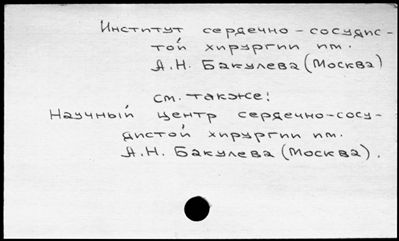 Институт сердечно-сосудис-
той хирургии им.
А.Н. Бакулева (Москва)
см. также:
Научный центр сердечно-сосу-
дистой хирургии им.
А.Н. Бакулева (Москва).